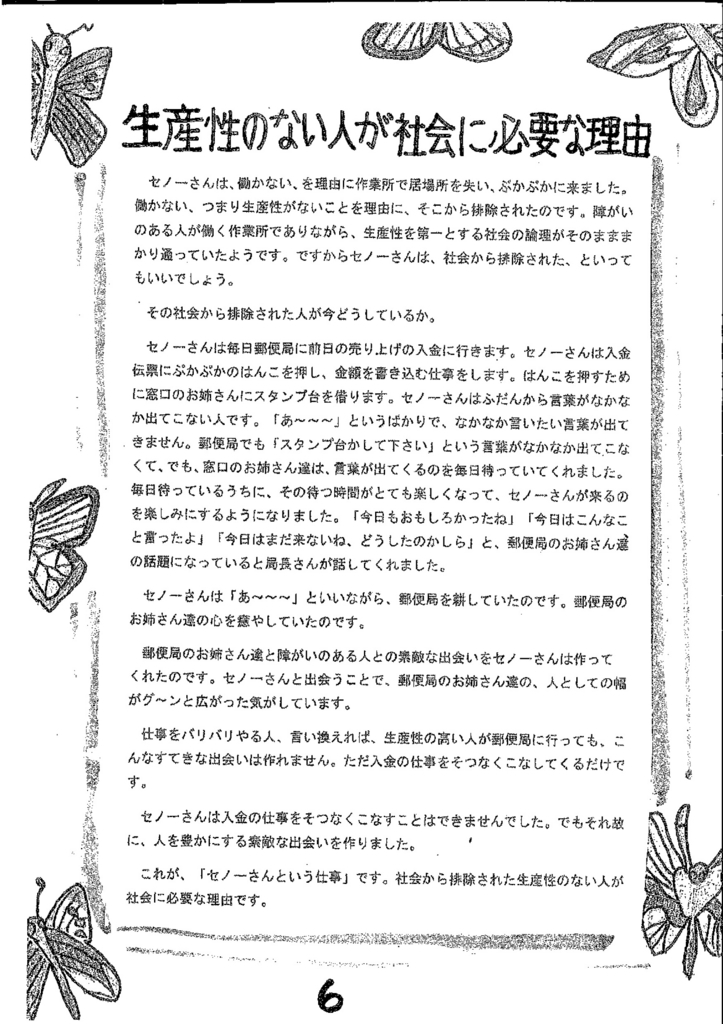 生産性のない人が社会に必要な理由
セノーさんは、働かない、を理由に作業所で居場所を失い、ぷかぷかに来ました。
働かない、つまり生産性がないことを理由に、そこから排除されたのです。障がい
のある人が働く作業所でありながら、生産性を第一とする社会の論理がそのままま
かり通っていたようです。ですからセノーさんは、社会から排除された、といって
もいいでしょう。
その社会から排除された人が今どうしているか。
セノーさんは毎日郵便局に前日の売り上げの入金に行きます。セノーさんは入金
伝票にぷかぷかのはんこを押し、金額を書き込む仕事をします。はんこを押すため
に窓口のお姉さんにスタンプ台を借ります。セノーさんはふだんから言葉がなかな
か出てこない人です。「あ～～～」というばかりで、なかなか言いたい言葉が出て
きません。郵便局でも「スタンプ台かして下さい」という言葉がなかなか出てこな
くて、でも、窓口のお姉さん達は、言葉が出てくるのを毎日待っていてくれました。
毎日待っているうちに、その待つ時間がとても楽しくなって、セノーさんが来るの
を楽しみにするようになりました。「今日もおもしろかったね」「今日はこんなこ
と言ったよ」「今日はまだ来ないね、どうしたのかしら」と、郵便局のお姉さん達
の話題になっていると局長さんが話してくれました。
セノーさんは「あ～～～」といいながら、郵便局を耕していたのです。郵便局の
お姉さん達の心を癒やしていたのです。
郵便局のお姉さん達と障がいのある人との素敵な出会いをセノーさんは作って
くれたのです。セノーさんと出会うことで、郵便局のお姉さん達の、人としての幅
がグ～ンと広がった気がしています。
仕事をバリバリやる人、言い換えれば、生産性の高い人が郵便局に行っても、こ
んなすてきな出会いは作れません。ただ入金の仕事をそつなくこなしてくるだけで
す。
セノーさんは入金の仕事をそつなくこなすことはできませんでした。でもそれ故
に、人を豊かにする素敵な出会いを作りました。
これが、「セノーさんという仕事」です。社会から排除された生産性のない人が
社会に必要な理由です。
6